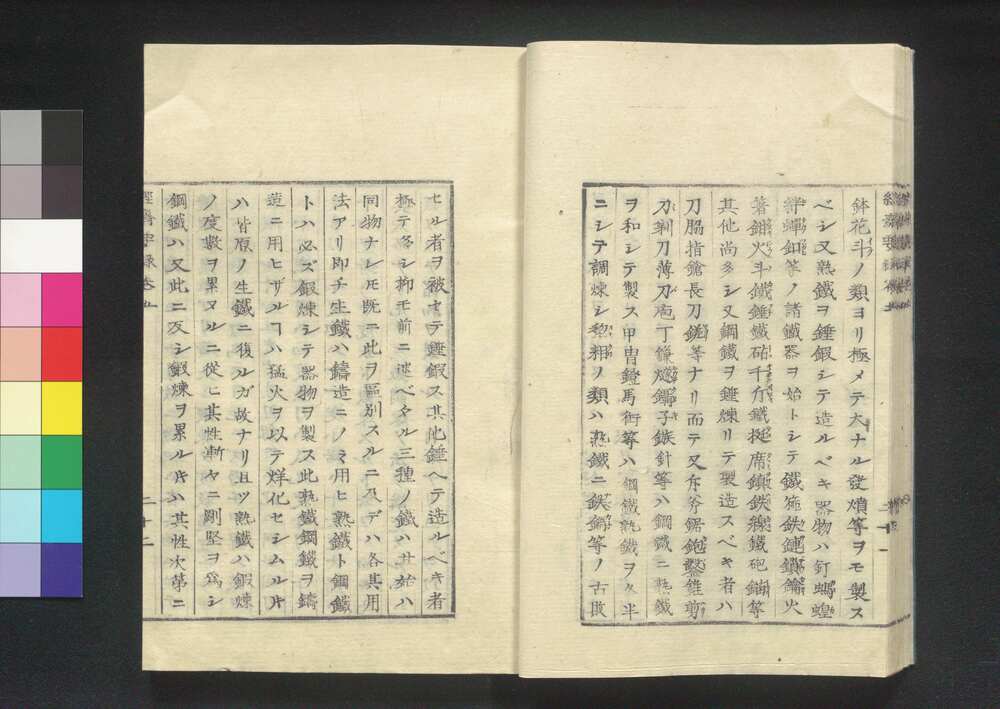 鉢花斗ノ類ヨリ極メテ大ナル發熕等ヲモ製ス
ベシ又熟鐵ヲ錘鍛シテ造ルベキ器物ハ釘螞蝗
釬蟬釦等ノ諸鐵器ヲ始トシテ鐵鏈鎖鑰火
箸鉗火斗鐵錘鐵砧千斤鐵挺席鎮鉄線鐵砲鍋等
其他尚多シ又鋼鐵ヲ錘煉リテ製造スベキ者ハ
刀脇指鎗長刀鎈等ナリ而テ又斧斤鋸鉋鑿錐剪
刀剃刀薄刀庖丁鎌鑷子鏃針等ハ鋼鐵ニ熟鐵
ヲ和シテ製ス甲冑鐙馬銜等ハ鋼鐵熟鐵ヲ各半
ニシテ調煉シ犂耜ノ類ハ熟鐵ニ鉄鍋等ノ古敗
セル者ヲ被セテ錘鍛ス其他錘ヘテ造ルベキ者
極テ多シ抑モ前ニ述ベタル三種ノ鐵ハ其始ハ
同物ナレモ既ニ此ヲ區別スルニ及デハ各其用
法アリ即チ生鐵ハ鑄造ニノミ用ヒ熟鐵ト鋼鐵
トハ必ズ鍛煉シテ器物ヲ製ス此熟鐵鋼鐵ヲ鑄
造ニ用ヒザルヿハ猛火ヲ以テ烊化セシムル片
ハ皆原ノ生鐵ニ復ルガ故ナリ且ツ熟鐵ハ鍛煉
ノ度數ヲ累ヌルニ從ヒ其性漸々ニ剛堅ヲ爲シ
鋼鐵ハ又此ニ反シ鍛煉ヲ累ル片ハ其性次第ニ
二十二